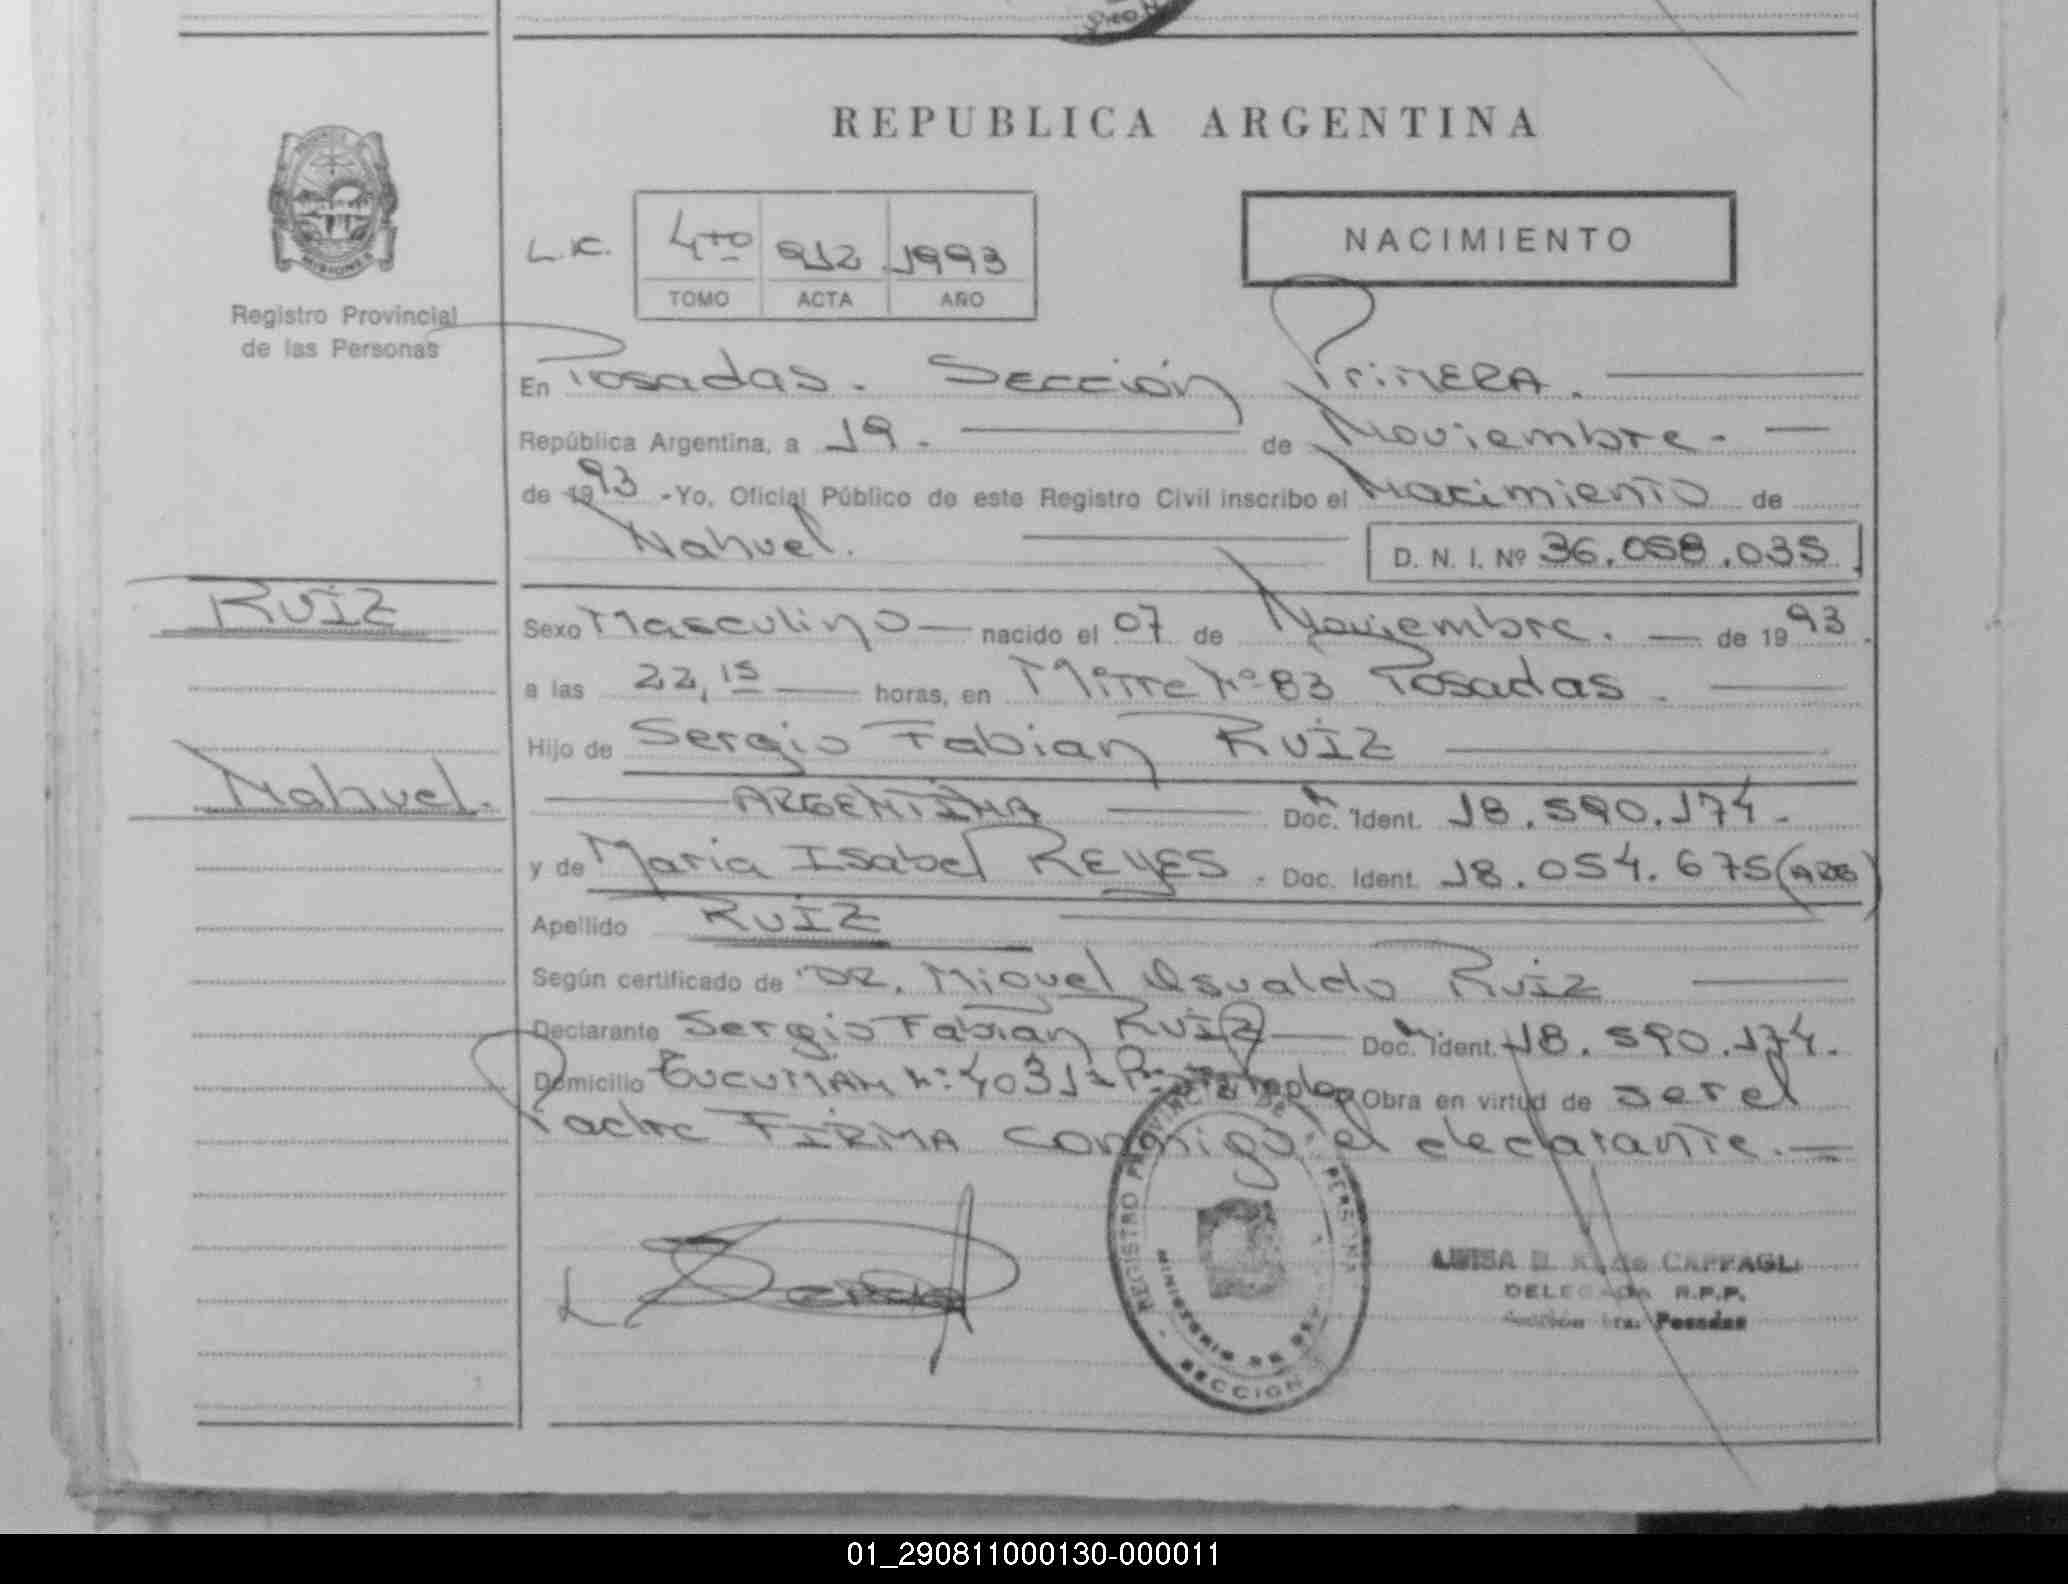 REPUBLICA ARGENTINA
MISIONES
Registro Provincial
de las Personas
L.C.
4to 912 1993
TOMO ACTA AÑO
NACIMIENTO
En Posadas. Sección Primera.
República Argentina, a 19. de Noviembre.
de 1993 -Yo, Oficial Público de este Registro Civil inscribo el Nacimiento de
Nahuel. D. N. I. Nº 36.058.035
Ruiz
Sexo Masculino nacido el 07 de Noviembre. de 1993.
a las 22,15 horas, en Mitre Nº 83 Posadas.
Hijo de Sergio Fabian Ruiz
Nahuel.
ARGENTINA Doc. Ident. 18.590.174.
y de Maria Isabel REYES. Doc. Ident. 18.054.675 (ARG)
Apellido Ruiz
Según certificado de DR. Miguel Osvaldo Ruiz
Declarante Sergio Fabian Ruiz Doc. Ident. 18.590.174.
Domicilio TUCUMAN Nº 4031 Obra en virtud de ser el
Padre FIRMA conmigo el declarante.
REGISTRO PROVINCIAL DE PERSONA
MINISTERIO DE
SECCION
LUISA de CAFFAGLI
DELEGADA R.P.P.
Sección 1ra. Posadas
01_290811000130-000011